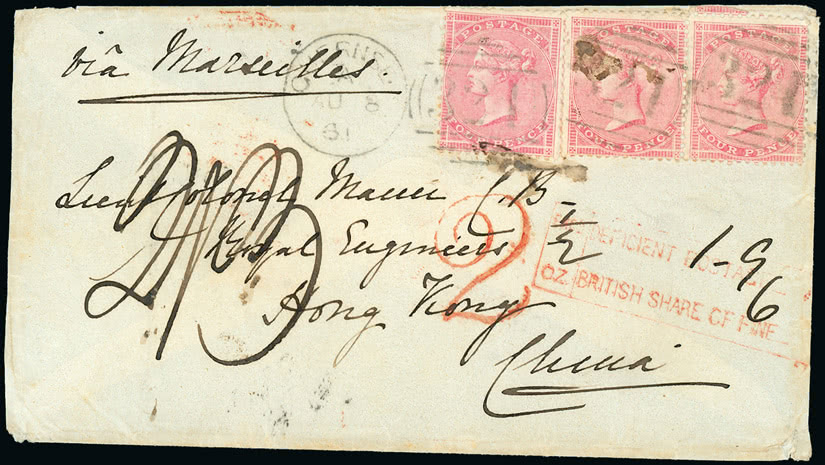 viâ Marseilles.
AU 8
61
POSTAGE
FOUR PENCE
321
POSTAGE
FOUR PENCE
321
POSTAGE
FOUR PENCE
321
Lieut Colonel C.B.
Royal Engineers
Hong Kong
China
2
1/2
1-9
6
DEFICIENT POSTAGE
OZ. BRITISH SHARE OF FINE